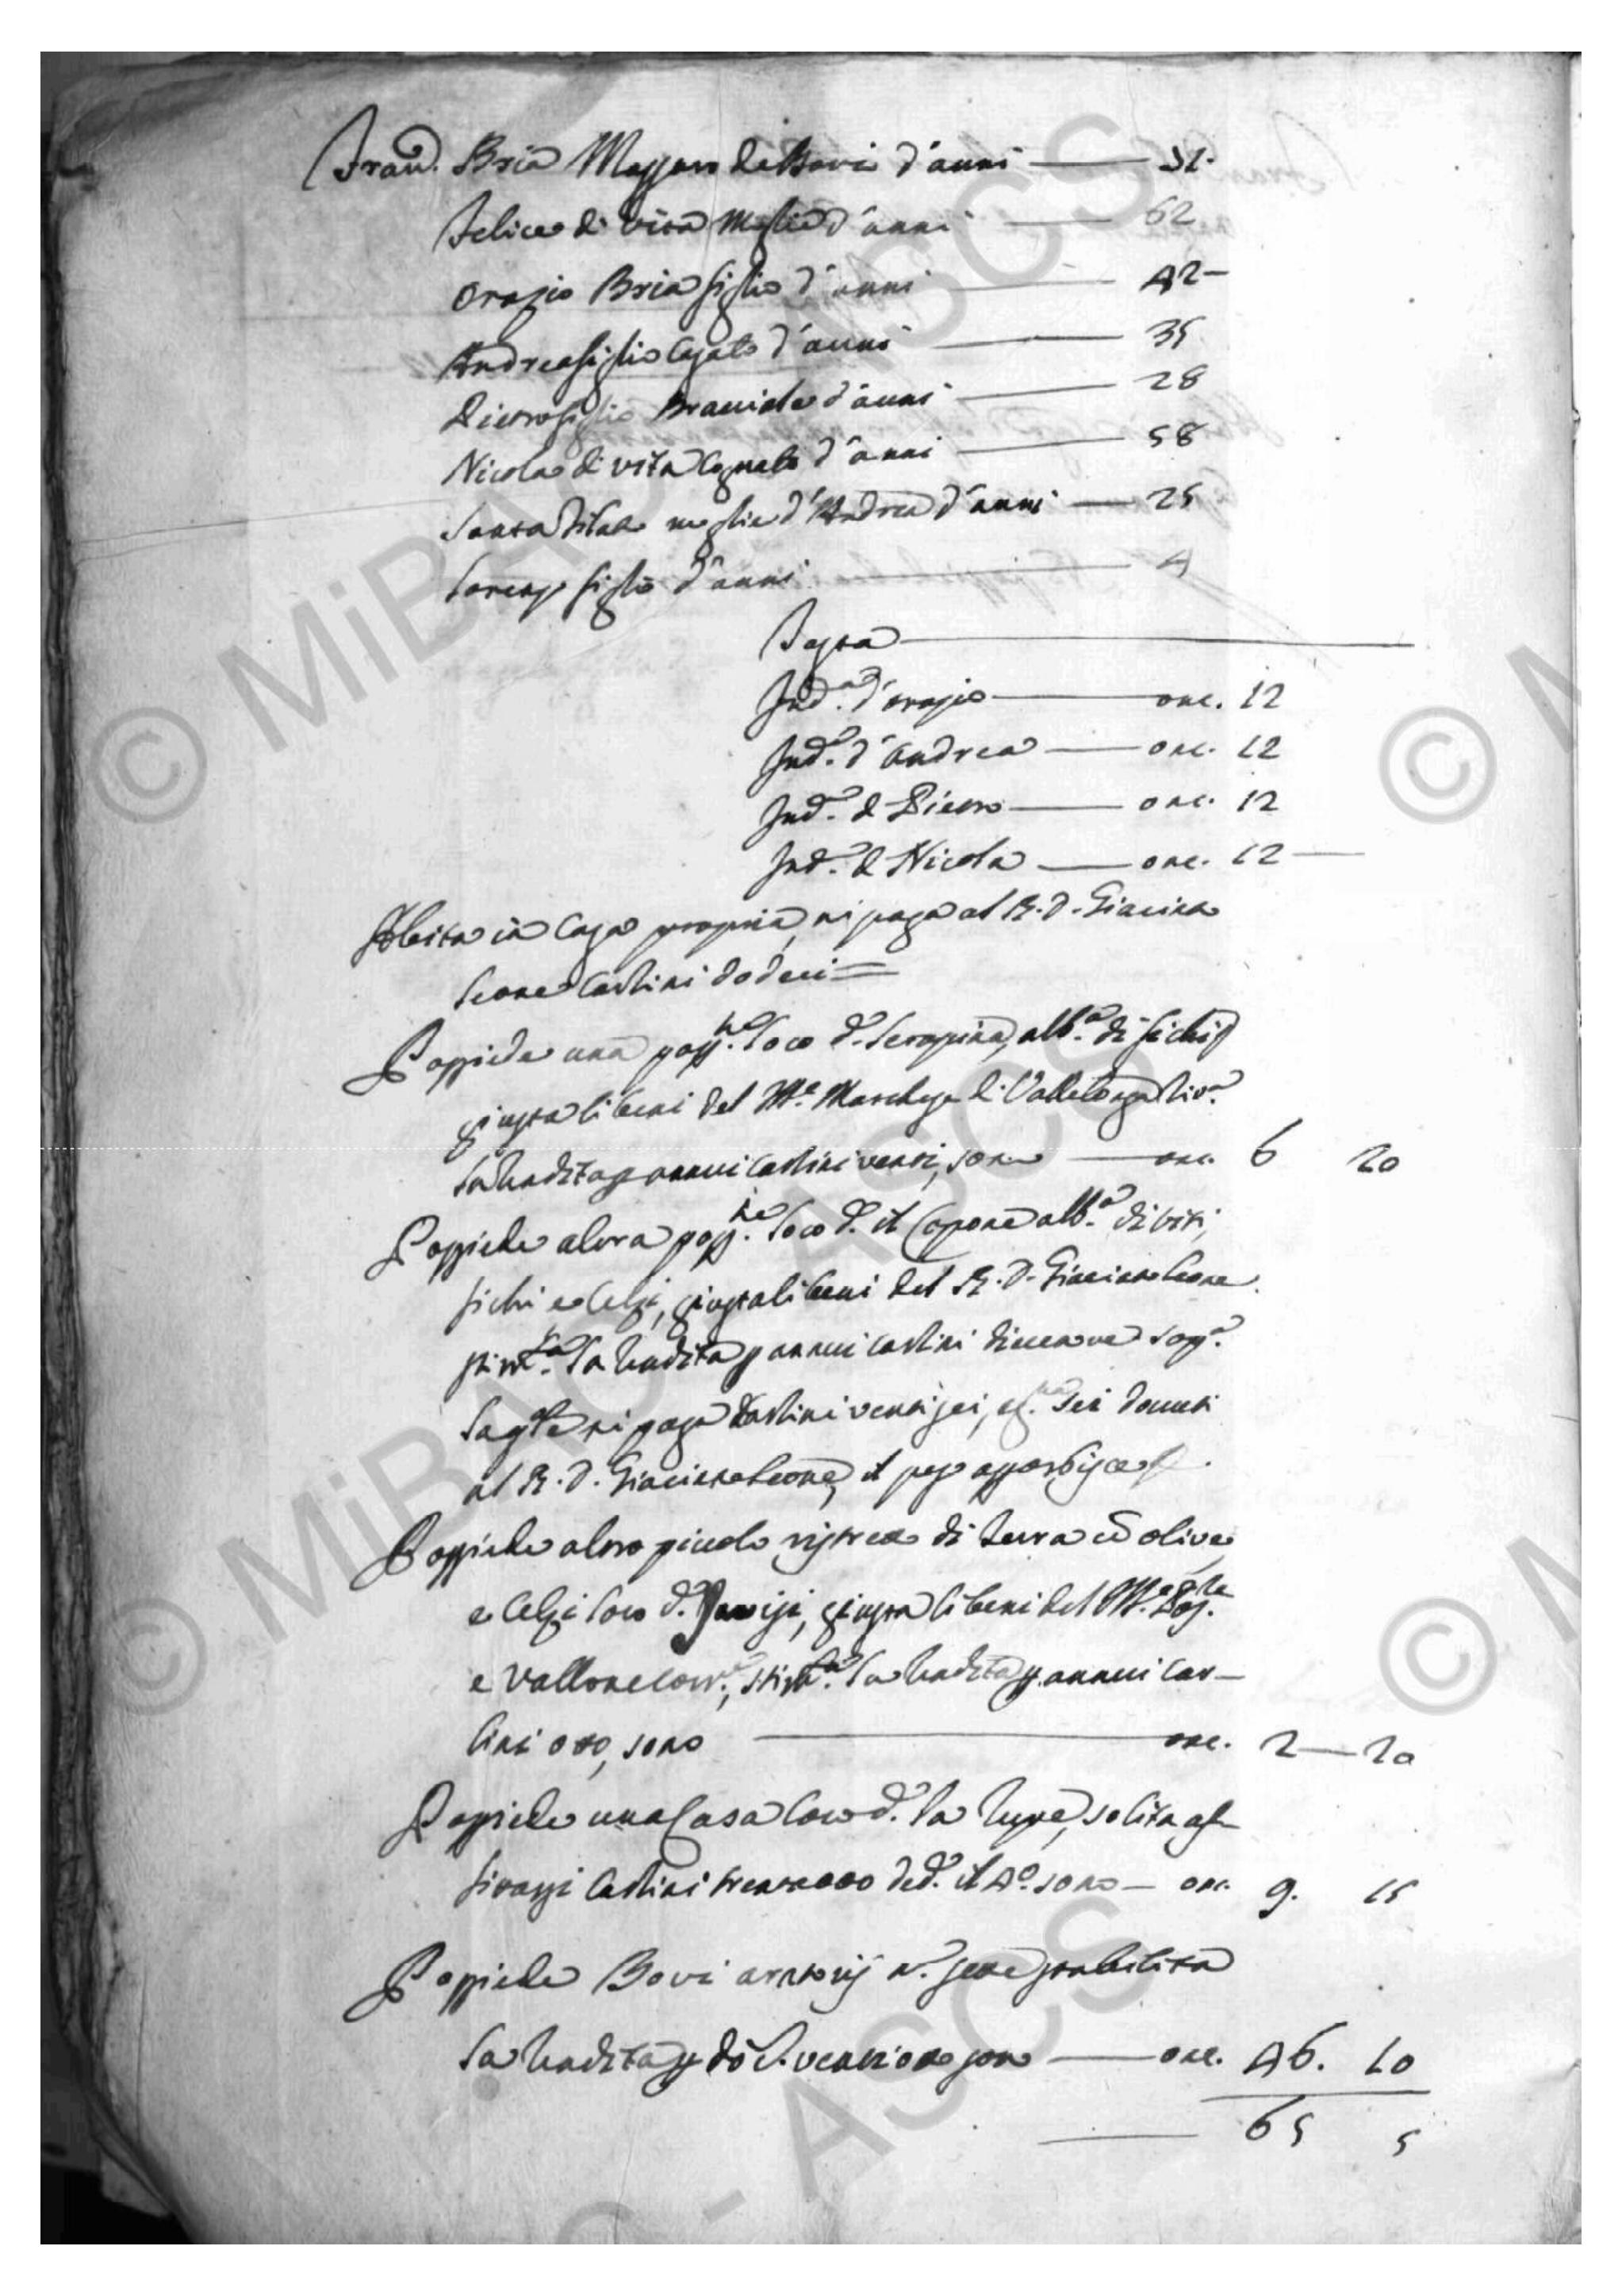 Fran.co Bria Massaro de Bovi d'anni —
Felice di Vita moglie d'anni — 62
Orazio Bria figlio d'anni — 42 —
Andrea figlio casato d'anni — 35
Pietro figlio Bracciale d'anni — 28
Nicola di Vita Cognato d'anni — 58
moglie d'Andrea d'anni — 25
Lorenzo figlio d'anni — 4
Testa —
Ind.a d'Orazio — onc. 12
Ind.a d'Andrea — onc. 12
Ind.a di Pietro — onc. 12
Ind.a di Nicola — onc. 12 —
Abita in Casa propria, ne paga al R. D. Giacinto
Leone Carlini dodeci =
Possiede una poss.ne loco d.o Serapina, alb.a di fichi
giusta li beni del M.e Marchese di Vallelonga
la rendita p annui Carlini venti, sono — onc. 6 20
Possiede altra poss.ne loco d.o il Capone alb.a di viti,
fichi e Celzi, giusta li beni del R. D. Giacinto Leone
stim.ta la rendita p annui Carlini
ne paga Carlini venti sei, docati
al R. D. Giacinto Leone, il peso assorbisce
Possiede altro piccolo ristretto di terra co olive
e Celzi loco d.o giusta li beni del
e Vallone corr.e, stim.ta la rendita p. annui Car-
lini otto, sono — onc. 2 — 20
Possiede una Casa loco d.o la Rupe, solita af-
fittarsi Carlini trentaotto ded.o il 4.o sono — onc. 9. 15
Possiede Bovi aratorij n.o sette stabilita
la rendita p do — onc. 46. 10
— 65 5
© MiBAC - ASCS
© MiBAC - ASCS